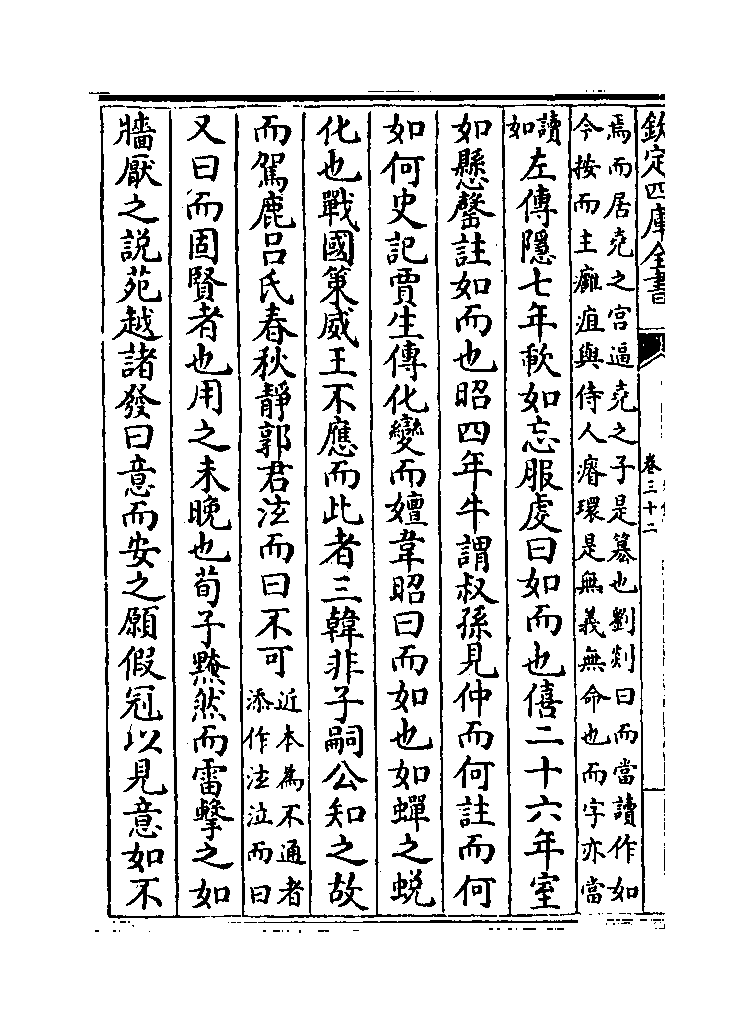 欽定四庫全書
卷三十二
焉而居堯之宫逼堯之子是簒也劉剡曰而當讀作如
今按而主癰疽與侍人瘠環是無義無命也而字亦當
讀如
左傳隱七年歃如忘服䖍曰如而也僖二十六年室
如懸罄註如而也昭四年牛謂叔孫見仲而何註而何
如何史記賈生傳化變而嬗韋昭曰而如也如蟬之蛻
化也戰國策威王不應而此者三韓非子嗣公知之故
而駕鹿吕氏春秋靜郭君泫而曰不可
近本為不通者
添作泫泣而曰
又曰而固賢者也用之未晚也荀子黭然而雷擊之如
牆厭之説苑越諸發曰意而安之願假冠以見意如不